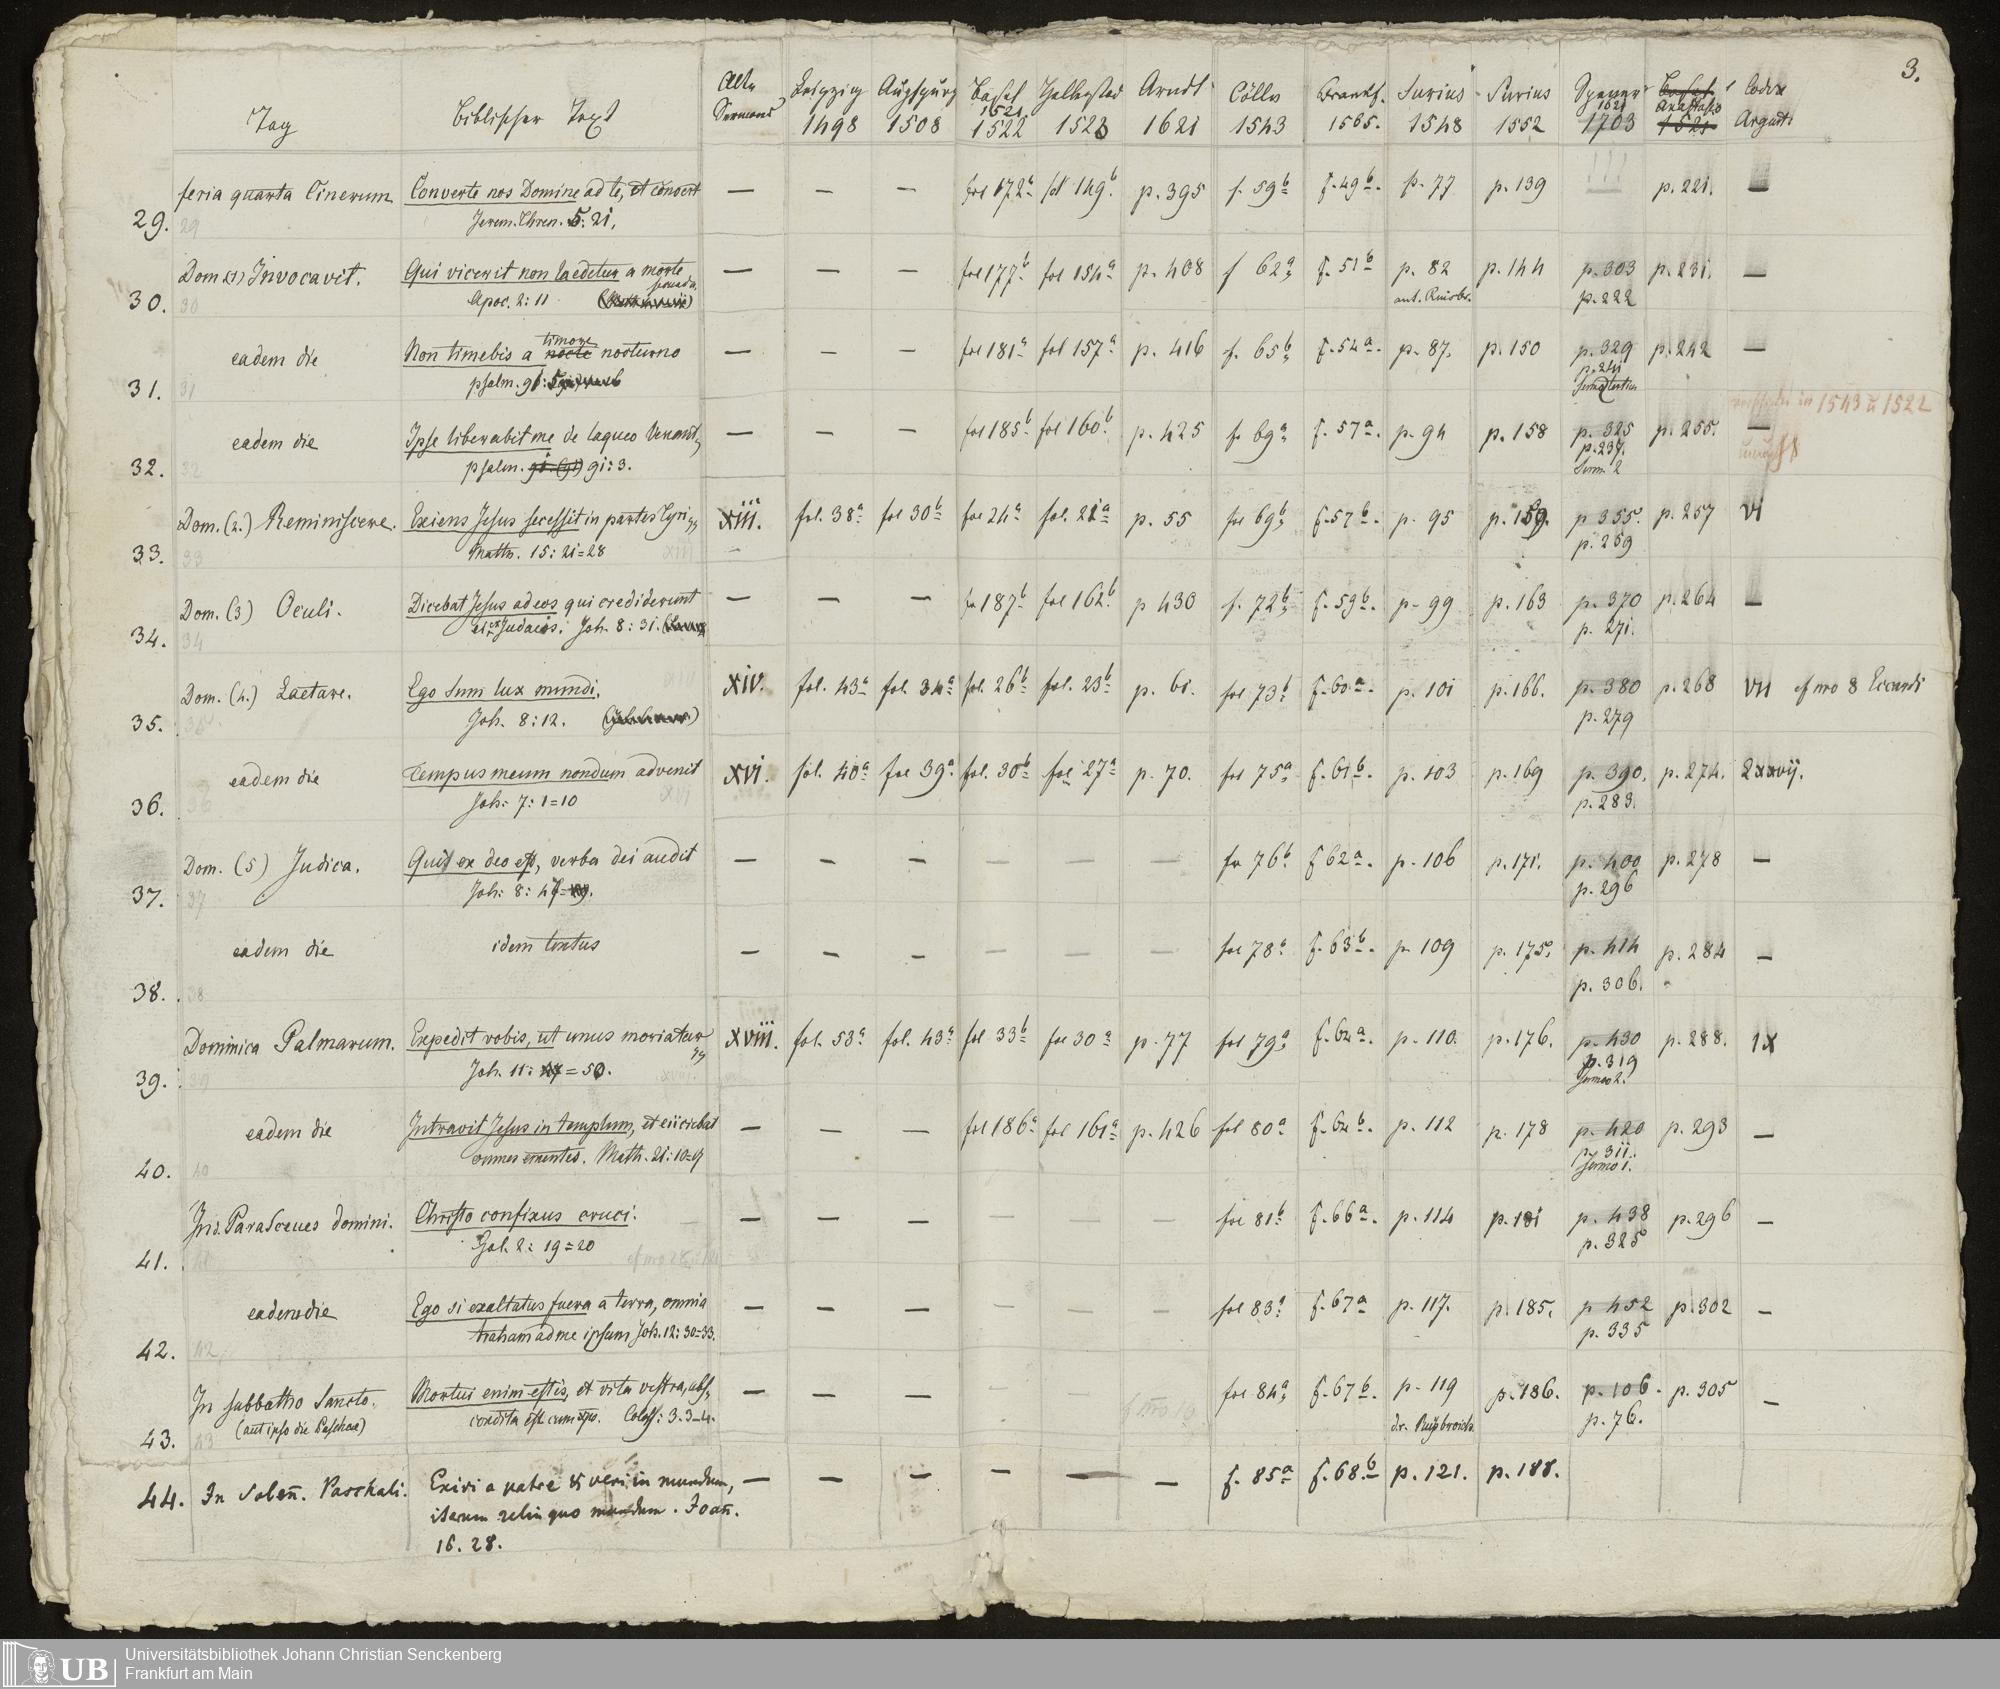 3.
Tag Biblischer Text Alte Sermones Leipzig 1498 Augspurg 1508 Basel 1521 1522 Halberstad 1523 Arndt 1621 Cölln 1543 Frankf. 1565. Surius 1548 Surius 1552 Spener 1621 1703 Basel 1521 Codex Argent.
29. feria quarta Cinerum Converte nos Domine ad te, et convert — — — fol 172b fol 149b. p. 395 f. 59b f. 49b. p. 77 p. 139 p. 221. —
29 Jerem. Thren. 5: 21,
30. Dom (1) Invocavit. Qui vicerit non laedetur a morte — — — fol 177b fol 154a p. 408 f 62a, f. 51b p. 82 p. 144 p. 303 p. 231. —
30 Apoc. 2: 11 p. 222
31. eadem die Non timebis a nocte timore nocturno — — — fol 181a fol 157a p. 416 f. 65b, f. 54a. p. 87. p. 150 p. 329 p. 242 —
31 psalm. 91: 5 p. 241
verschieden in 1543 u 1522
32. eadem die Ipse liberabit me de laqueo venant, — — — fol 185b fol 160b. p. 425 f. 69a, f. 57a. p. 94 p. 158 p. 325 p. 255. —
32 psalm. 91: 3. p. 237. Serm. 2
33. Dom. (2.) Reminiscere. Exiens Jesus secessit in partes Tyri xiii. fol. 38a fol 30b fol 24a fol. 21a p. 55 fol 69b, f. 57b. p. 95 p. 159. p 355. p. 257 vi
33 Matth. 15: 21=28 xiii p. 259
34. Dom. (3) Oculi. Dicebat Jesus ad eos qui crediderunt — — — fo 187b fol 162b. p 430 f. 72b, f. 59b. p. 99 p. 163 p. 370 p. 264 —
34 ei ex Judaeis. Joh. 8: 31. p. 271.
35. Dom. (4.) Laetare. Ego sum lux mundi. xiv. fol. 43a fol. 34a fol. 26b fol. 23b p. 61. fol 73b f. 60a. p. 101 p. 166. p. 380 p. 268 vii cf no 8 Eccardi
Joh. 8: 12. p. 279
36. eadem die Tempus meum nondum advenit xvi. fol. 40a fol 39a fol. 30b fol 27a p. 70. fol 75a, f. 61b. p. 103 p. 169 p. 390. p. 274. 2xxvij.
36 Joh: 7: 1=10 xvi p. 283.
37. Dom. (5) Judica. Quis ex deo est, verba dei audit — — — — — — fo 76b f 62a. p. 106 p. 171. p. 400 p. 278 —
37 Joh: 8: 47 p. 296
38. eadem die idem textus — — — — — — fol 78a f. 63b. p. 109 p. 175, p. 414 p. 284 —
38 p. 306.
39. Dominica Palmarum. Expedit vobis, ut unus moriatur xviii. fol. 53a fol. 43a fol 33b fol 30a p. 77 fol 79a, f. 64a. p. 110. p. 176. p. 430 p. 288. ix
39 Joh. 11: = 50. p. 319 Sermo 2.
40. eadem die Intravit Jesus in templum, et eiiciebat — — — fol 186a fol 161a p. 426 fol 80a f. 64b. p. 112 p. 178 p. 420 p. 293 —
40 omnes ementes. Math. 21: 10=17 p. 311. Sermo 1.
41. In d. Parasceues domini. Christo confixus cruci. — — — — — — fol 81b f. 66a. p. 114 p. 181 p. 438 p. 296 —
Gal. 2: 19=20 p. 325
42. eadem die Ego si exaltatus fuero a terra, omnia — — — — — — fol 83a f. 67a p. 117. p. 185. p 452 p. 302 —
42 traham ad me ipsum Joh. 12: 30=33. p. 335
43. In sabbatho sancto. Mortui enim estis, et vita vestra, abs, — — — — — fol 84a, f. 67b. p. 119 p. 186. p. 106. p. 305 —
43 (aut ipso die Paschae) condita est cum xpo. Coloss: 3. 3-4. p. 76.
44. In solen̄. Paschali. Exivi a patre & veni in mundum, — — — — — — f. 85a f. 68.b p. 121. p. 188.
iterum relinquo mundum. Joan̄.
16. 28.
UB
Universitätsbibliothek Johann Christian Senckenberg
Frankfurt am Main